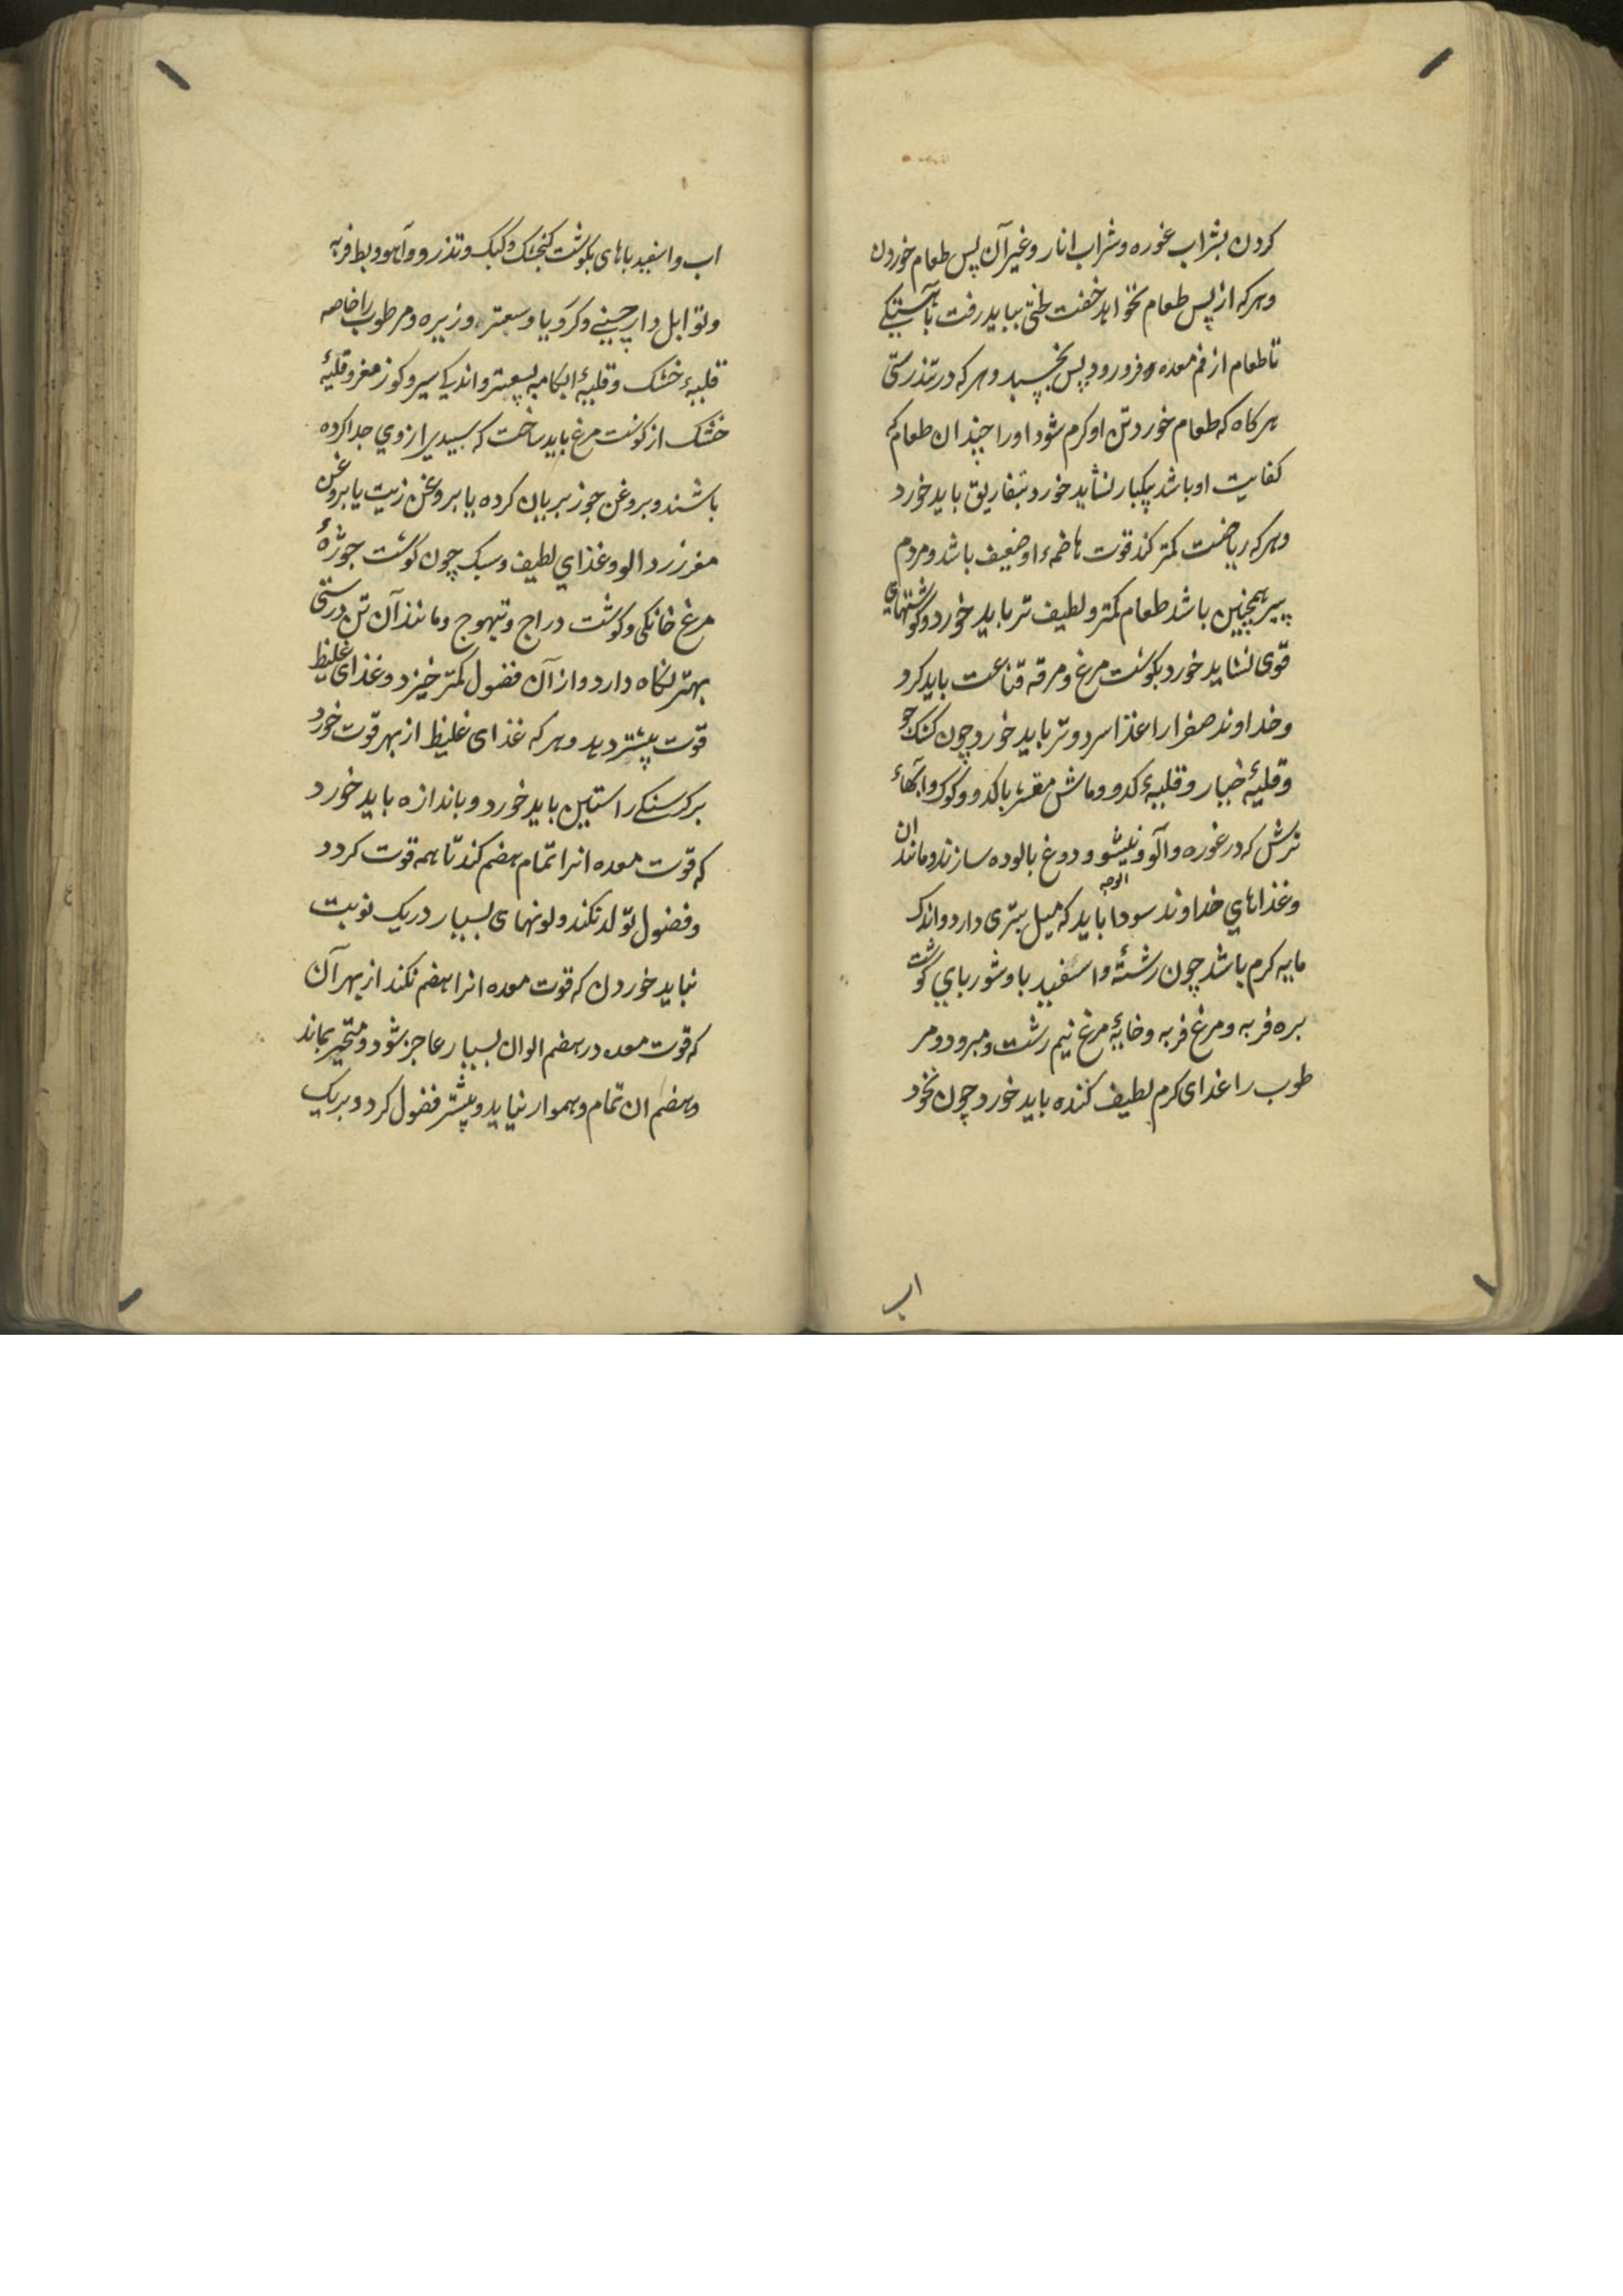 کردن بشراب غوره وشراب انار وغیر آن پس طعام خوردن
وهرکه از پس طعام بخواهد خفت لختی بباید رفت بآهستکی
تا طعام از فم معده فرورود پس بخسپد وهرکه در تندرستی
هرکاه که طعام خورد تن او کرم شود او را چندان طعام که
کفایت او باشد بیکبار نشاید خورد بتفاریق باید خورد
وهرکه ریاضت کمتر کند قوت هاضمهٔ او ضعیف باشد ومردم
پیر همچنین باشد طعام کمتر ولطیف تر باید خورد وکوشتهای
قوی نشاید خورد بکوشت مرغ ومرقه قناعت باید کرد
وخداوند صفرا را غذا سرد وتر باید خورد چون کشک جو
وقلیهٔ خیار وقلیهٔ کدو وماش مقشر باکدو وکوک وابکهاء
ترش که در غوره وآلو ونیشو ودوغ بالوده سازند ومانند ان
وغذاهاي خداوند سودا باید که میل بتری دارد واندک
الوجه
مایه کرم باشد چون رشته واسفید با وشورباي کوشت
بره فربه ومرغ فربه وخایهٔ مرغ نیم رشت ومبرود ومر
طوب را غدای کرم لطیف کننده باید خورد چون نخود
اب
اب واسفید باهای بکوشت کنجشک وکبک وتذرو وآهو وبط فربه
وتوابل دارچینی وکرویا وسعتر وزیره ومرطوب را خاصه
قلیهٔ خشک وقلیهٔ ابکامه بسعتر واندکی سیر وکوز مغز وقلیهٔ
خشک از کوشت مرغ باید ساخت که سپیدی از وي جدا کرده
باشند وبروغن جوز بریان کرده یا بروغن زیت یا بروغن
مغز زردالو وغذاي لطیف وسبک چون کوشت جوژهٔ
مرغ خانکی وکوشت دراج وتیهوج ومانند آن تن درستی
بهتر نکاه دارد واز آن فضول کمتر خیزد وغذای غلیظ
قوت بیشتر دهد وهرکه غذای غلیظ از بهر قوت خورد
برکرسنکی راستین باید خورد وباندازه باید خورد
که قوت معده انرا تمام هضم کند تا همه قوت کردد
وفضول تولد نکند ولونهای بسیار در یک نوبت
نباید خوردن که قوت معده انرا هضم نکند از بهر آن
که قوت معده در هضم الوان بسیار عاجز شود ومتحیر بماند
وهضم ان تمام وهموار نیاید وبیشتر فضول کردد وبریک